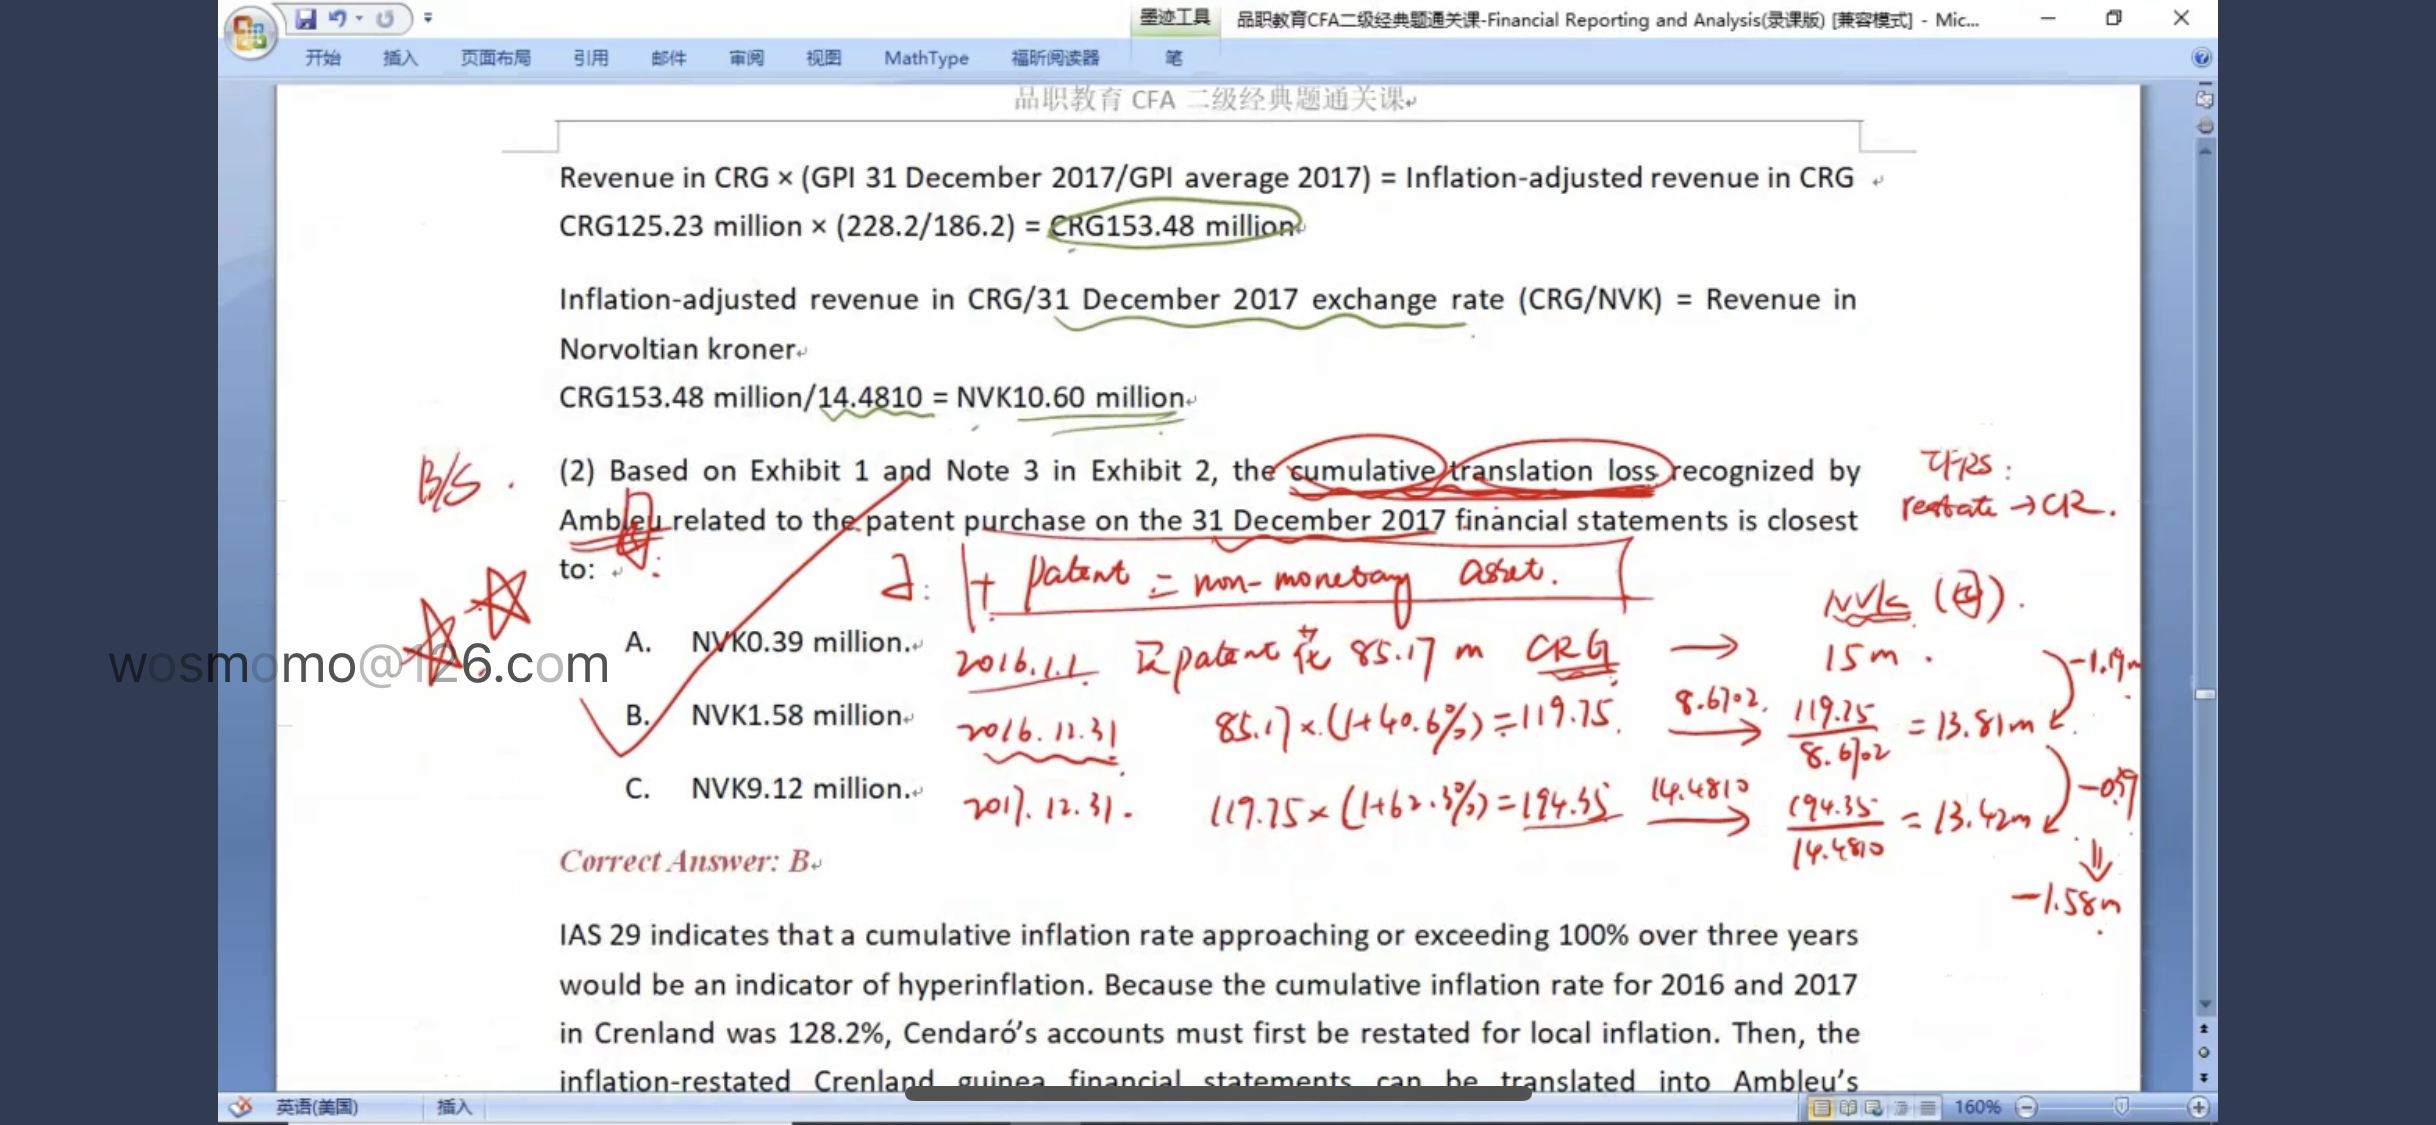 墨迹工具
品职教育CFA二级经典题通关课-Financial Reporting and Analysis(录课版) [兼容模式] - Mic...
开始 插入 页面布局 引用 邮件 审阅 视图 MathType 福昕阅读器 笔
品职教育 CFA 二级经典题通关课
Revenue in CRG × (GPI 31 December 2017/GPI average 2017) = Inflation-adjusted revenue in CRG
CRG125.23 million × (228.2/186.2) = CRG153.48 million
Inflation-adjusted revenue in CRG/31 December 2017 exchange rate (CRG/NVK) = Revenue in
Norvoltian kroner
CRG153.48 million/14.4810 = NVK10.60 million
B/S.
(2) Based on Exhibit 1 and Note 3 in Exhibit 2, the cumulative translation loss recognized by
IFRS:
Ambleu related to the patent purchase on the 31 December 2017 financial statements is closest
restate → CR.
to:
子: + patent = non-monetary asset.
NVK (母).
A. NVK0.39 million.
2016.1.1 买patent 花 85.17 m CRG → 15m. -1.19m
wosmomo@126.com
B. NVK1.58 million
2016.12.31 85.17×(1+40.6%)=119.75. 8.6702. → 119.75/8.6702 = 13.81m
C. NVK9.12 million.
2017.12.31. 119.75×(1+62.3%)=194.35 14.4810 → 194.35/14.4810 = 13.42m -0.39
-1.58m
Correct Answer: B
IAS 29 indicates that a cumulative inflation rate approaching or exceeding 100% over three years
would be an indicator of hyperinflation. Because the cumulative inflation rate for 2016 and 2017
in Crenland was 128.2%, Cendaró's accounts must first be restated for local inflation. Then, the
inflation-restated Crenland guinea financial statements can be translated into Ambleu's
英语(美国) 插入 160%